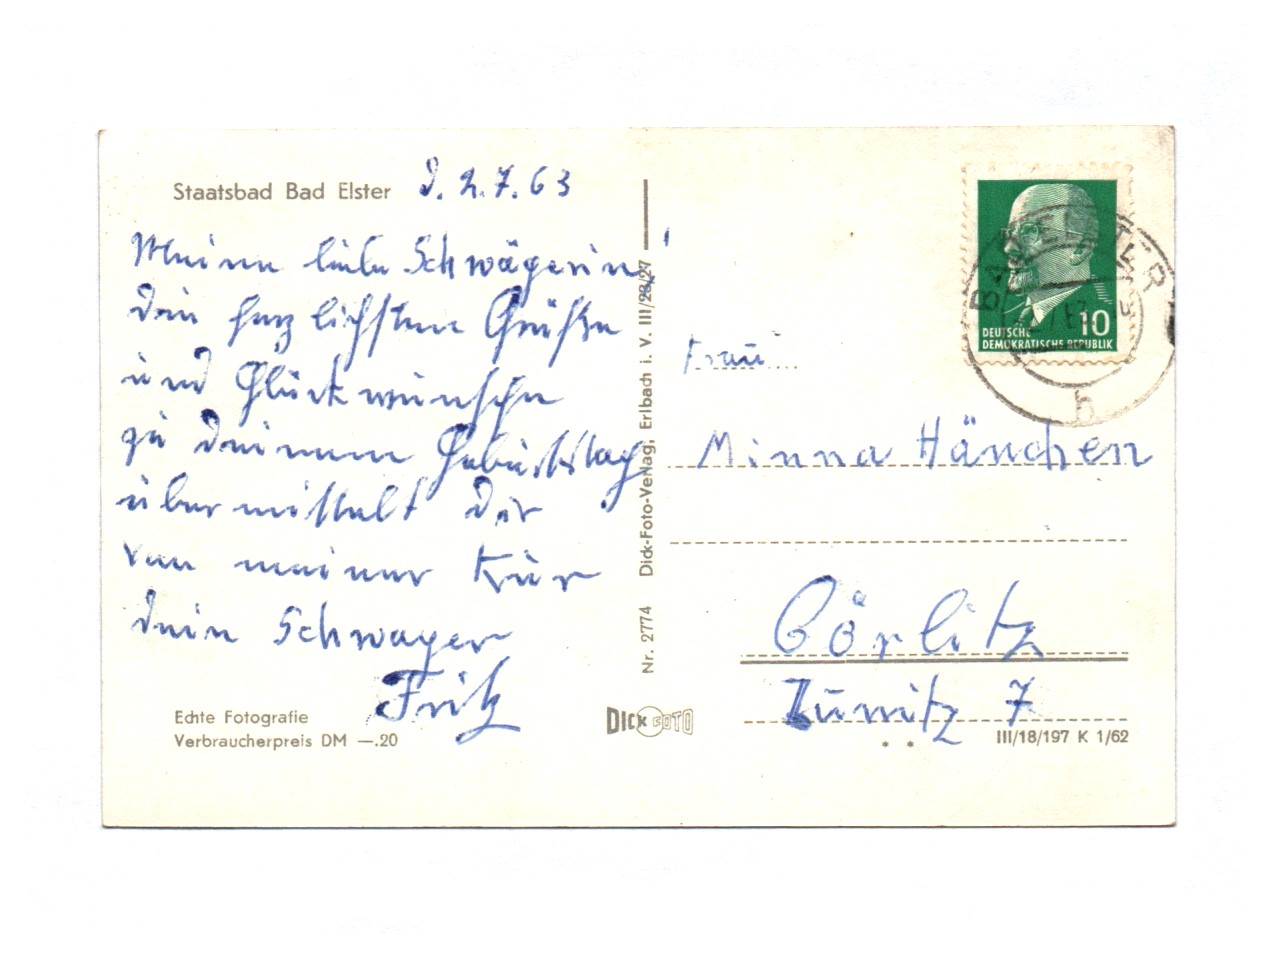 Staatsbad Bad Elster d. 2.7.63
Meine liebe Schwägerin!
die herzlichsten Grüße
und Glückwünsche
zu deinem Geburtstag
übermittelt dir
von meiner Kur
dein Schwager
Fritz
Echte Fotografie
Verbraucherpreis DM —.20
Nr. 2774 Dick-Foto-Verlag, Erlbach i. V. III/28/27
DICK FOTO
DEUTSCHE
DEMOKRATISCHE REPUBLIK
10
BAD ELSTER
b
Frau
Minna Hänchen
Görlitz
7
III/18/197 K 1/62